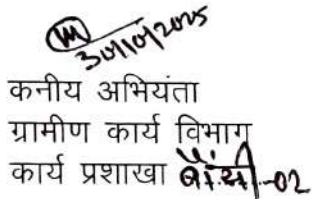 30/10/2025
कनीय अभियंता
ग्रामीण कार्य विभाग
कार्य प्रशाखा -02